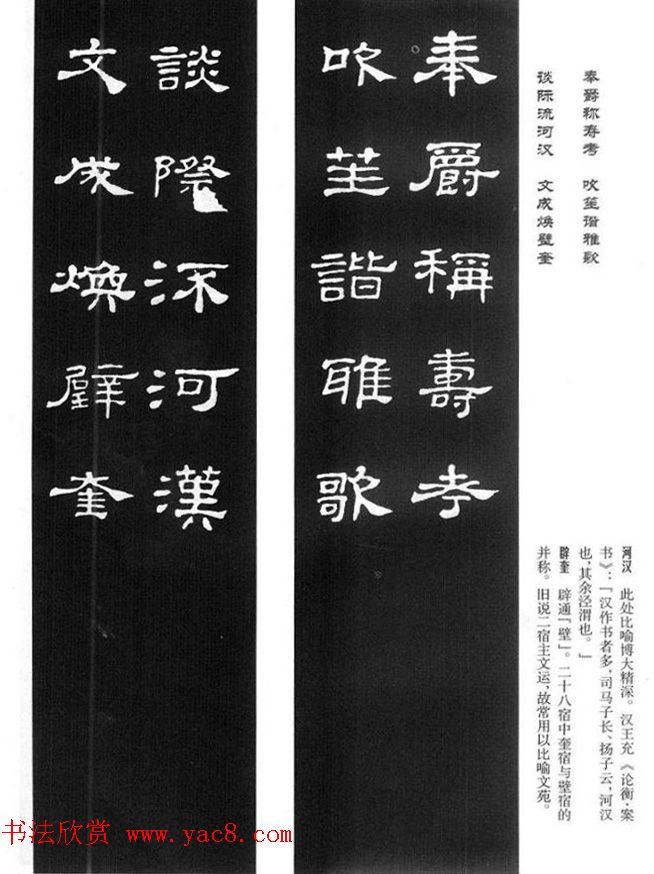 奉爵称寿考　吹笙谐雅歌
谈际流河汉　文成焕壁奎
河汉　此处比喻博大精深。汉王充《论衡·案
书》：「汉作书者多，司马子长、扬子云，河汉
也，其余泾渭也。」
辟奎　辟通『壁』。二十八宿中奎宿与壁宿的
并称。旧说二宿主文运，故常用以比喻文苑。
奉爵稱壽考
吹笙諧雅歌
談際流河漢
文成煥辟奎
书法欣赏 www.yac8.com